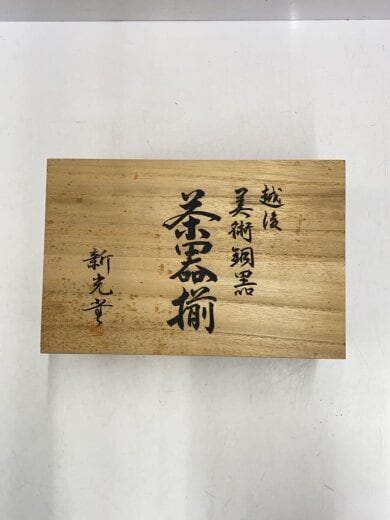 越後
美術銅器
茶器揃
新光堂